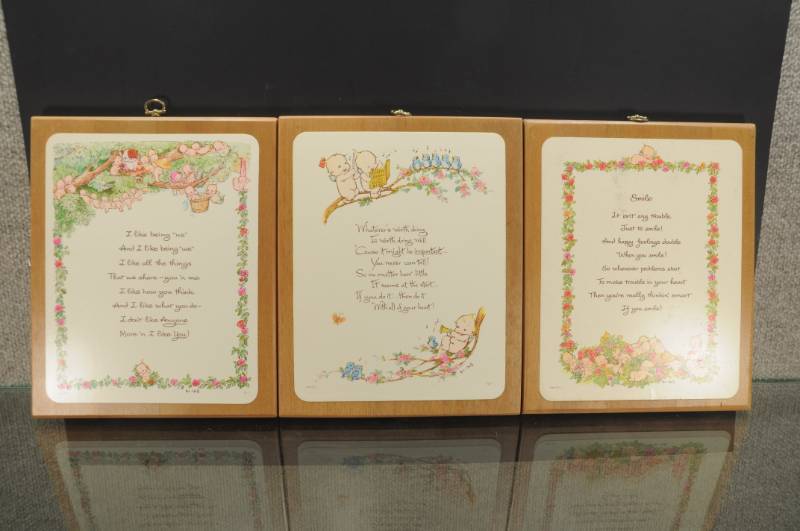 I like being "me"
And I like being "us"
I like all the things
That we share - you 'n me
I like how you think
And I like what you do -
I don't like Anyone
More 'n I like You!
Whatever's worth doing
Is worth doing well
'Cause it might be important -
You never can tell!
So no matter how little
It seems at the start -
If you do it - then do it
With all of your heart!
Smile
It isn't any trouble
Just to smile!
And happy feelings double
When you smile!
So whenever problems start
To make trouble in your heart
Then you're really thinkin' smart
If you smile!